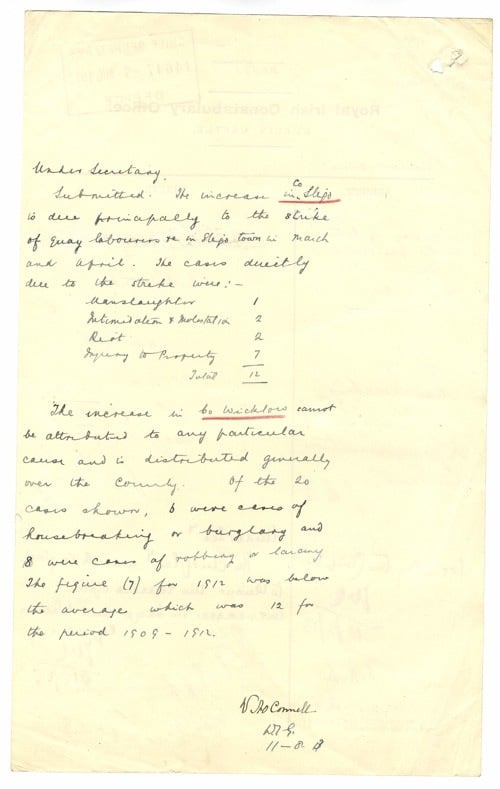 Under Secretary.
Submitted. The increase in Co Sligo
is due principally to the strike
of Quay labourers &c in Sligo town in March
and April. The cases directly
due to the strike were:-
Manslaughter 1
Intimidation & Molestation 2
Riot 2
Injury to Property 7
Total 12
The increase in Co Wicklow cannot
be attributed to any particular
cause and is distributed generally
over the County. Of the 20
cases shown, 6 were cases of
housebreaking or burglary and
8 were cases of robbing or larceny
The figure (7) for 1912 was below
the average which was 12 for
the period 1909 - 1912.
O'Connell
D.I.G.
11-8-13
Royal Irish Constabulary Office